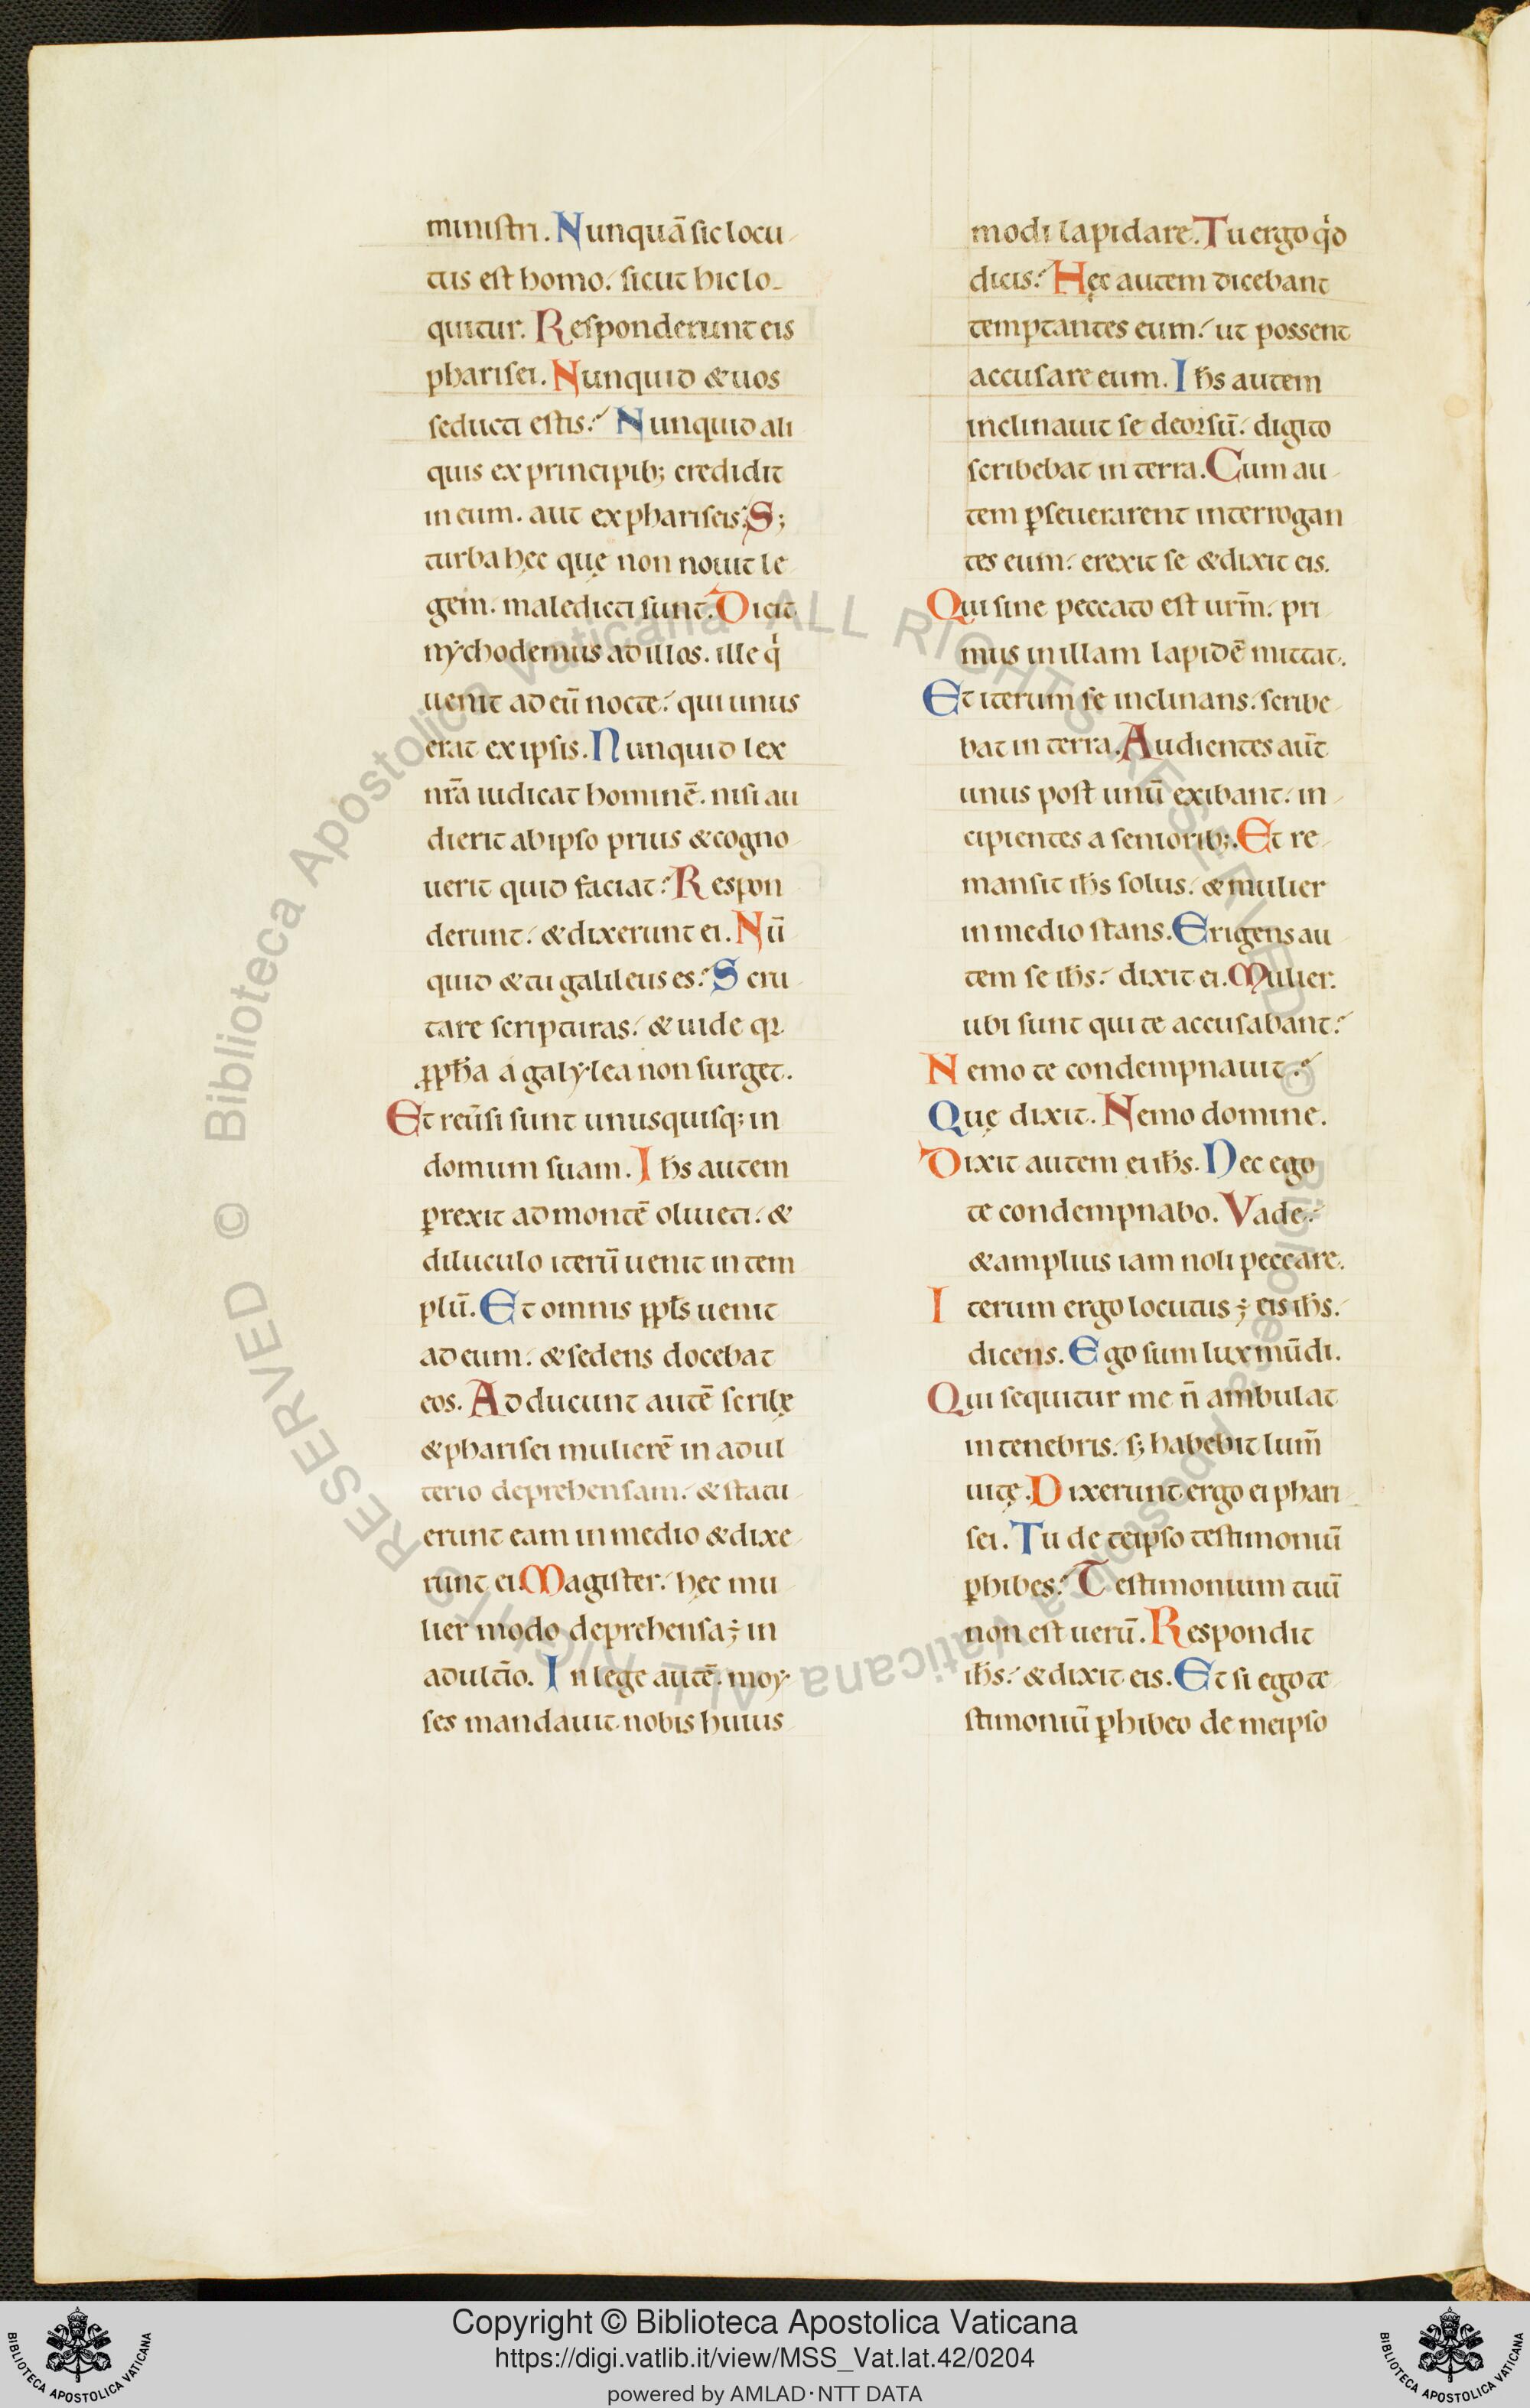 ministri. Nunquā sic locu-
tus est homo. sicut hic lo-
quitur. Responderunt eis
pharisei. Nunquid & uos
seducti estis? Nunquid ali
quis ex principib; credidit
in eum. aut ex phariseis? S;
turba hęc quę non nouit le
gem. maledicti sunt. Dicit
nychodemus ad illos. ille q̇
uenit ad eū nocte. qui unus
erat ex ipsis. Nunquid lex
nr̄a iudicat hominē. nisi au
dierit ab ipso prius & cogno-
uerit quid faciat? Respon
derunt. & dixerunt ei. Nū
quid & tu galileus es? Scru-
tare scripturas. & uide qꝛ
ꝓph̄a a galylea non surget.
Et reūsi sunt unusquisq; in
domum suam. Ih̄s autem
ꝑrexit ad montē oliueti. &
diluculo iterū uenit in tem
plū. Et omnis ppl̄s uenit
ad eum. & sedens docebat
eos. Adducunt autē scribę
& pharisei mulierē in adul
terio deprehensam. & statu-
erunt eam in medio & dixe-
runt ei. Magister. hęc mu-
lier modo deprehensa ÷ in
adult̄io. In lege autē. moy-
ses mandauit nobis huius
modi lapidare. Tu ergo q̇d
dicis? Hęc autem dicebant
temptantes eum. ut possent
accusare eum. Ih̄s autem
inclinauit se deorsū. digito
scribebat in terra. Cum au-
tem ꝑseuerarent interrogan
tes eum. erexit se & dixit eis.
Qui sine peccato est ur̄m. pri-
mus in illam lapidē mittat.
Et iterum se inclinans. scribe-
bat in terra. Audientes aūt
unus post unū exibant. in-
cipientes a seniorib;. Et re-
mansit ih̄s solus. & mulier
in medio stans. Erigens au-
tem se ih̄s. dixit ei. Mulier.
ubi sunt qui te accusabant?
Nemo te condempnauit?
Quę dixit. Nemo domine.
Dixit autem ei ih̄s. Nec ego
te condempnabo. Vade.
& amplius iam noli peccare.
Iterum ergo locutus ÷ eis ih̄s.
dicens. Ego sum lux mūdi.
Qui sequitur me n̄ ambulat
in tenebris. s; habebit lum̄
uitę. Dixerunt ergo ei phari-
sei. Tu de teipso testimoniū
ꝑhibes? Testimonium tuū
non est uerū. Respondit
ih̄s. & dixit eis. Et si ego te-
stimoniū ꝑhibeo de meipso
© Biblioteca Apostolica Vaticana ALL RIGHTS RESERVED © Biblioteca Apostolica Vaticana ALL RIGHTS RESERVED
Copyright © Biblioteca Apostolica Vaticana
https://digi.vatlib.it/view/MSS_Vat.lat.42/0204
powered by AMLAD·NTT DATA
BIBLIOTECA APOSTOLICA VATICANA
BIBLIOTECA APOSTOLICA VATICANA